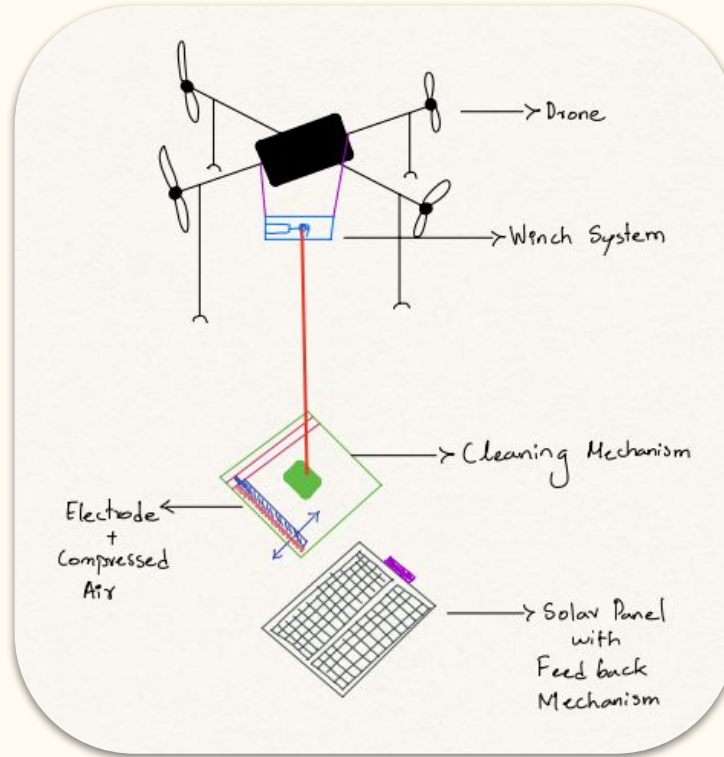 Drone
Winch System
Cleaning Mechanism
Electrode
+
Compressed
Air
Solar Panel
with
Feed back
Mechanism